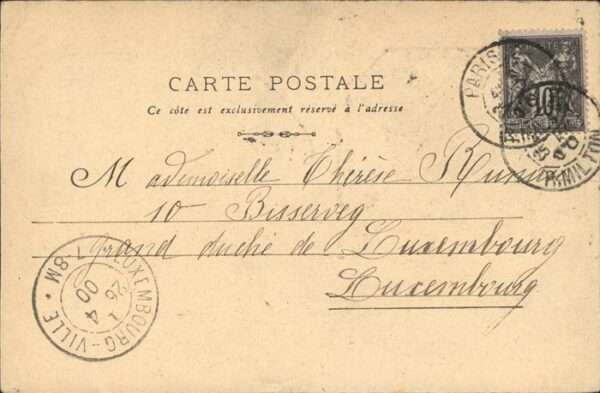 CARTE POSTALE
Ce côte est exclusivement réservé à l'adresse
PARIS
R. MILTON
10
Mademoiselle Thérèse
10 Bisserveg
grand duché de Luxembourg
Luxembourg
LUXEMBOURG-VILLE * 7-8M
26 4
00